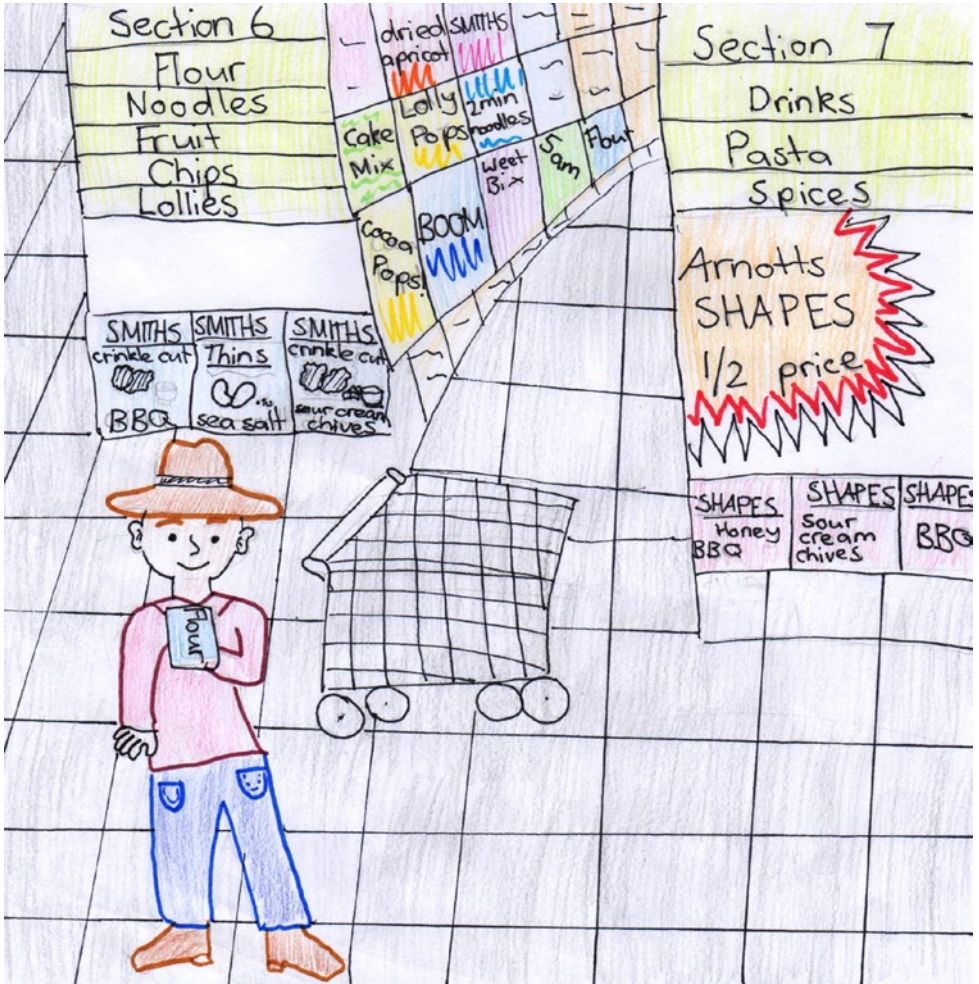 Section 6
Flour
Noodles
Fruit
Chips
Lollies
dried
apricot
SMITHS
Cake
Mix
Lolly
Pops
2min
noodles
Cocoa
Pops!
BOOM
Weet
Bix
Jam
Flour
Section 7
Drinks
Pasta
Spices
Arnotts
SHAPES
1/2 price
SMITHS
crinkle cut
BBQ
SMITHS
Thins
sea salt
SMITHS
crinkle cut
sour cream
chives
SHAPES
Honey
BBQ
SHAPES
Sour
cream
chives
SHAPE
BBQ
Flour